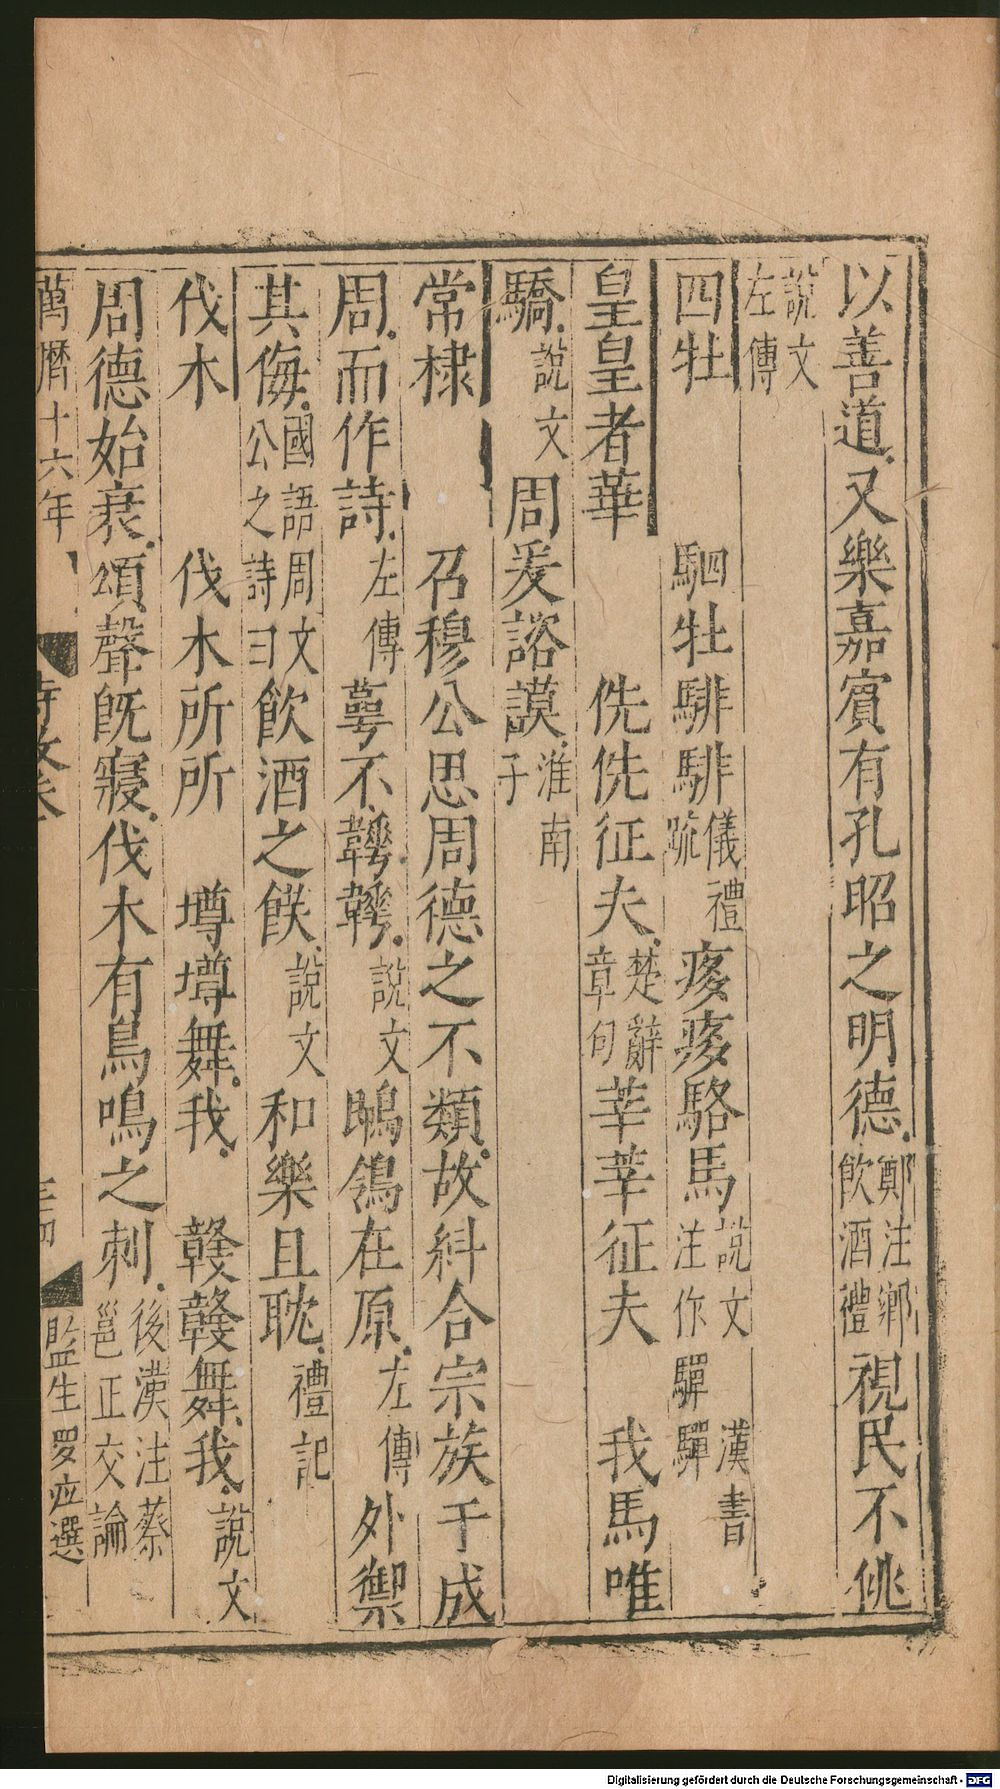 以善道又樂嘉賓有孔昭之明德鄭注鄉飲酒禮視民不佻
說文左傳
四牡 駟牡騑騑儀禮疏痑痑駱馬說文 漢書注作驒驒
皇皇者華 侁侁征夫楚辭章句莘莘征夫 我馬唯
驕說文周爰諮謨淮南子
常棣 召穆公思周德之不類故糾合宗族于成
周而作詩左傳萼不韡韡說文鴡鴒在原左傳外禦
其侮國語周文公之詩曰飲酒之䬫說文和樂且耽禮記
伐木 伐木所所 墫墫舞我 竷竷舞我說文
周德始衰頌聲既寢伐木有鳥鳴之刺後漢注蔡邕正交論
萬曆十六年 詩攷卷 監生羅應選
Digitalisierung gefördert durch die Deutsche Forschungsgemeinschaft - DFG